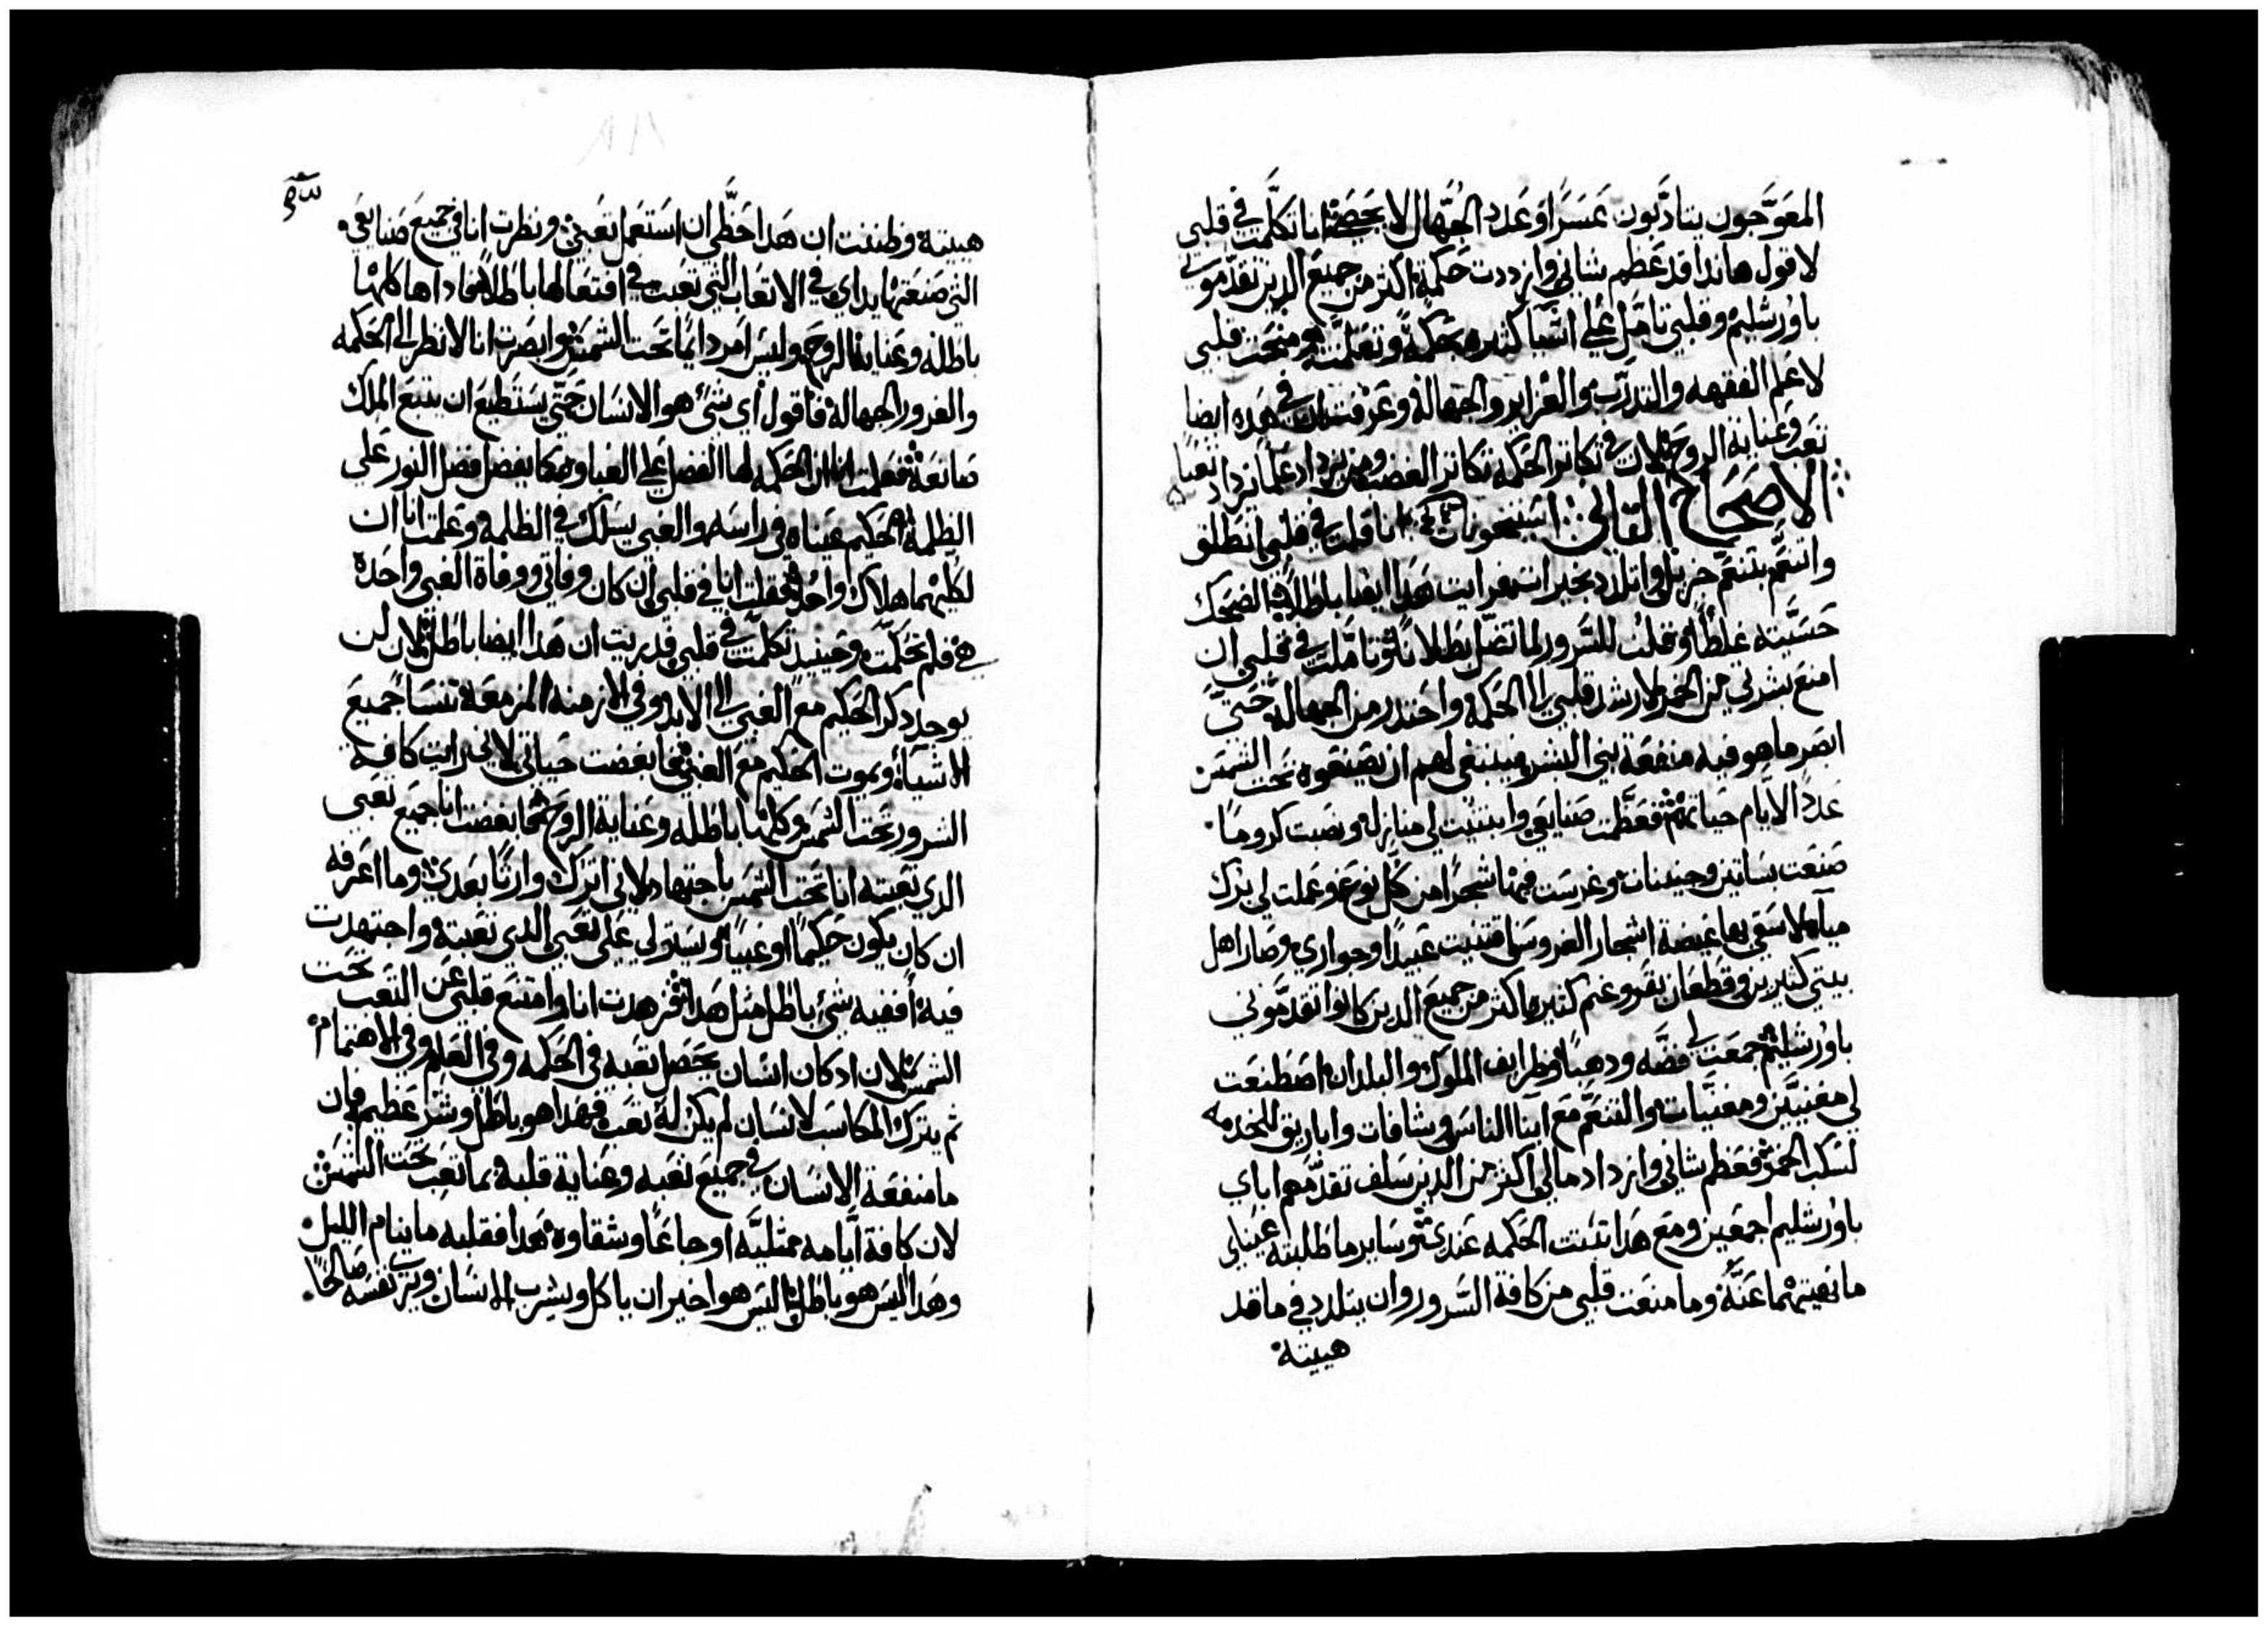 المعوَّجون يتادَّبون عسرًا وعدد الجهال لا يحصَى انا تكلَّمت في قلبي
لاقول هاندا قد عظم شاني وازددت حكمة اكثر من جميع الدين تقدموني
باورشليم وقلبي تامل علي اشيا كثيره بحكمة وتعلمت ومنحت قلبي
لاعلم الفقهه والتدرّب والغرايز والجهالة وعرفت ان في هده ايضا
تعب وعناية الروح لان في تكاثر الحكمة تكاثر الغضب ومن يزداد علما يزداد تعبا
الاصحاح التاني انا قلت في قلبي انطلق
واتنعَّم بتنعّم جزيل واتلدد بخيرات فرايت هدا ايضا باطلا الضحك
حسبته غلطًا وقلت للسرور لما تضل بطلانا وتاملت في قلبي ان
امنع بشرتي من الخمر لارشد قلبي الي الحكمة واحتدر من الجهالة حتيّ
ابصر ما هو فيه منفعة بني البشر فينبغي لهم ان يصنعوه تحت الشمس
عدد الايام حياتهم فعظَّمت صنايعي وابتنيت لي منازل ونصبت كرومًا
صنعت بساتين وجنينات وغرست فيها شجرا من كل نوع وعملت لي برك
مياه لاسقي بها غيضة اشجار الغروس اقتنيت عبيدًا وجواري وصار اهل
بيتي كثيرين وقطعان بقر وغنم كثيره اكثر من جميع الدين كانوا تقدَّموني
باورشليم جمعت لي فضَّه ودهبا وظرايف الملوك والبلدان اصطنعت
لي مغنيَّين ومغنيَّات والتنعَّم مع ابنا الناس وشافات واباريق للخدمه
لسكب الخمر فعظم شاني وازداد مالي اكثر من الدين سلف تقدّمهم اياي
باورشليم اجمعين ومع هدا تبتت الحكمه عندي وساير ما طلبته عيناي
ما نفيتهما عنَّه وما منعت قلبي من كافة السَّرور وان يتلدد في ما قد
هييته
هييته وظننت ان هدا حظَّي ان استعمل تعبي ونظرت انا في جميع صنايعي
التي صنعتها يداي في الاتعاب التي تعبت في افتعالها باطلا فادا هي كلها
باطله وعناية الروح وليس امر دايمًا تحت الشمس وابصرت انا لانظر الي الحكمه
والغرور الجهالة فاقول اي شئ هو الانسان حتّي يستطيع ان يتبع الملك
صانعه فعلمت انا ان الحكمه لها الفضل علي الغباوه كما يفضل فضل النور علي
الظلمة الحكيم عيناه في راسه والغبي يسلك في الظلمة وعلمت انا ان
لكليهما هلاك واحد فقلت انا في قلبي ان كان وفاتي ووفاة الغبي واحدة
هي فلم تحكمت وحينيد تكلمت في قلبي فدريت ان هدا ايضا باطل لان لن
يوجد دكر الحكيم مع الغبي الي الابد وفي الازمنه المزمعة تنسا جميع
الاشيا ويموت الحكيم مع الغبي فابغضت حياتي لاني رايت كافة
السرور تحت الشمس وكلها باطله وعناية الروح فابغضت انا جميع تعبي
الدي تعبته انا تحت الشمس باجتهاد لاني اترك وارثًا بعدي وما اعرفه
ان كان يكون حكيمًا او غبيًا ويستولي علي تعبي الدي تعبته واجتهدت
فيه اففيه شئ باطل مثل هدا فزهدت انا وامتنع قلبي عن التعب تحت
الشمس لان اد كان انسان يحصل تعبه في الحكمه وفي العلم وفي الاهتمام
ثم يترك المكاسب لانسان لم يكن له تعب فهدا هو باطل وشر عظيم فان
ما منفعة الانسان في جميع تعبه وعناية قلبه بما تعب تحت الشمس
لان كافة ايَّامه ممتليَّه اوجاعًا وشقاوه هدا فقلبه ما ينام الليل
وهدا اليس هو باطل اليس هو اخير ان ياكل ويشرب الانسان ويري نفسه صالحًا